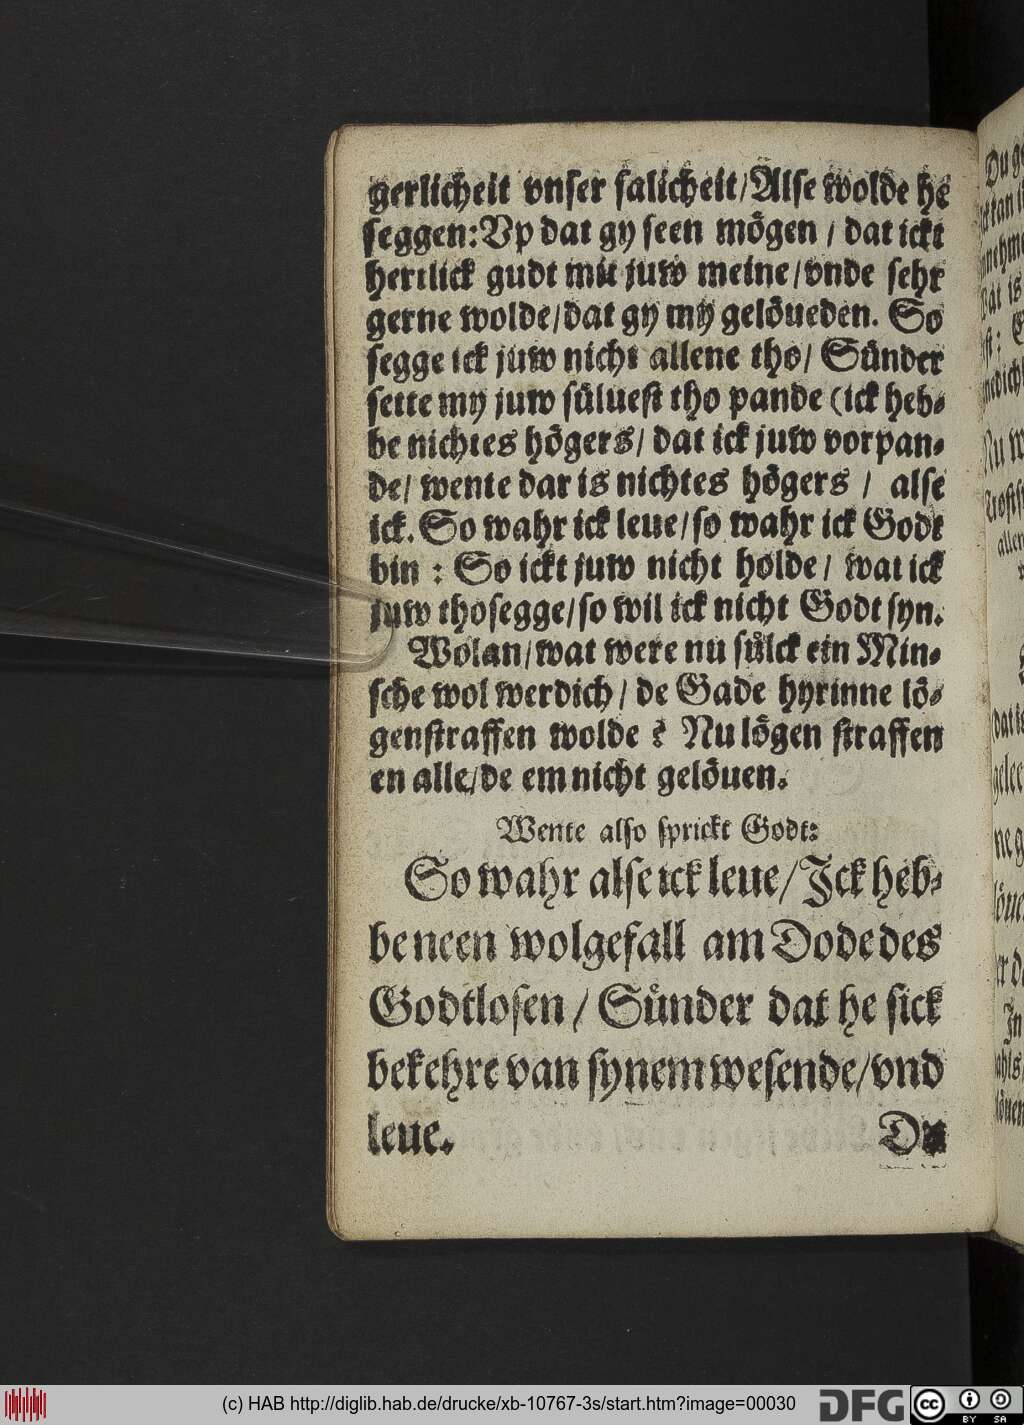 gerlicheit vnser salicheit/Alse wolde hē
seggen:Vp dat gy seen mögen / dat ickt
hertlick gudt mit juw meine/vnde sehr
gerne wolde/dat gy my gelöueden. So
segge ick juw nicht allene tho/ Sünder
sette my juw süluest tho pande (ick heb-
be nichtes högers/ dat ick juw vorpan-
de/ wente dar is nichtes högers / alse
ick. So wahr ick leue/so wahr ick Godt
bin : So ickt juw nicht holde/ wat ick
juw thosegge/so wil ick nicht Godt syn.
Wolan/wat were nu sülck ein Min-
sche wol werdich/ de Gade hyrinne lö-
genstraffen wolde ? Nu lögen straffen
en alle/de em nicht gelöuen.
Wente also sprickt Godt:
So wahr alse ick leue/Jck heb-
be neen wolgefall am Dode des
Godtlosen/ Sünder dat he sick
bekehre van synem wesende/vnd
leue. Du
(c) HAB http://diglib.hab.de/drucke/xb-10767-3s/start.htm?image=00030 DFG cc BY SA